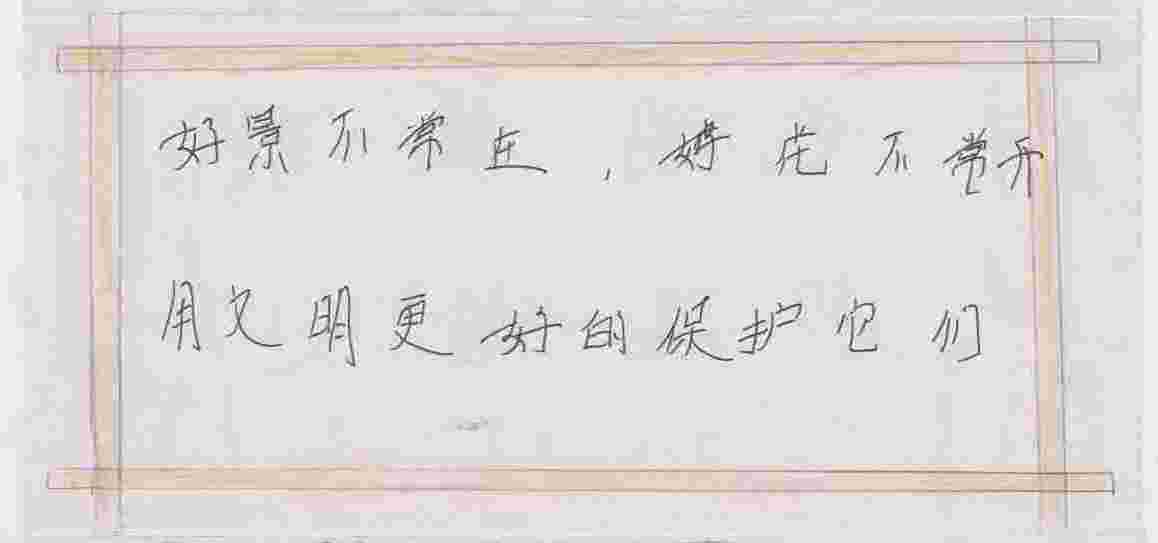 好景不常在,好花不常开
用文明更好的保护它们